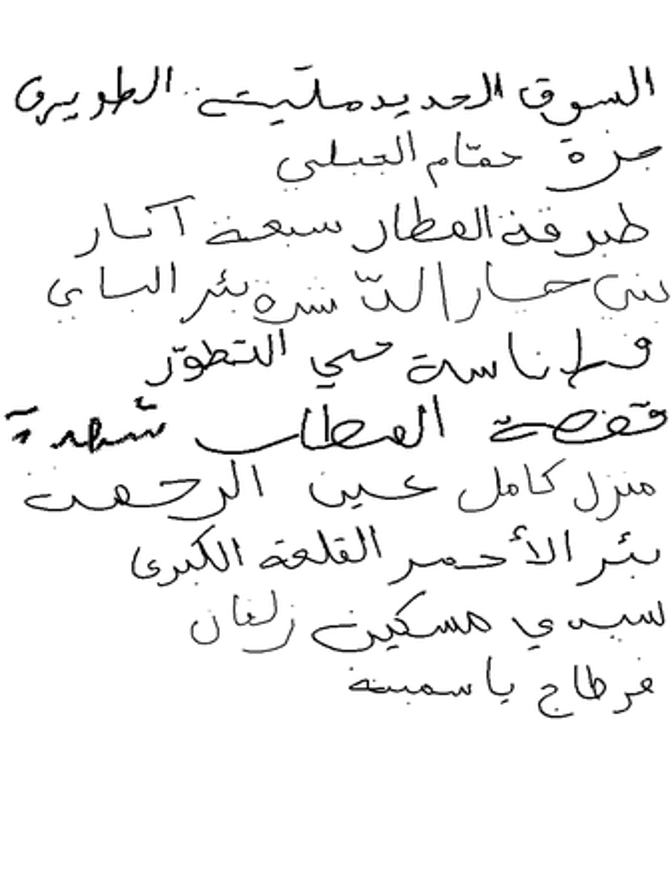 السوق الجديد مليتة الطويرف
جزة حمّام الجبلي
طبرقة العطار سبعة آبار
بني حسار الدّشرة بئر الباي
قرطناسة حي التطوّر
قفصة العطاب شهدة
منزل كامل عين الرحمت
بئر الأحمر القلعة الكبرى
سيدي مسكين زلفان
قرطاج ياسمينة